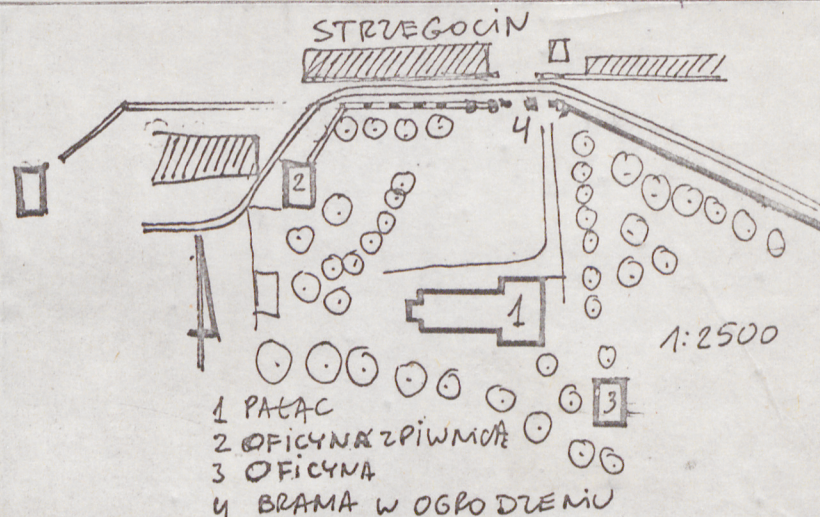 STRZEGOCIN
2
4
1
1:2500
3
1 PAŁAC
2 OFICYNA Z PIWNICĄ
3 OFICYNA
4 BRAMA W OGRODZENIU